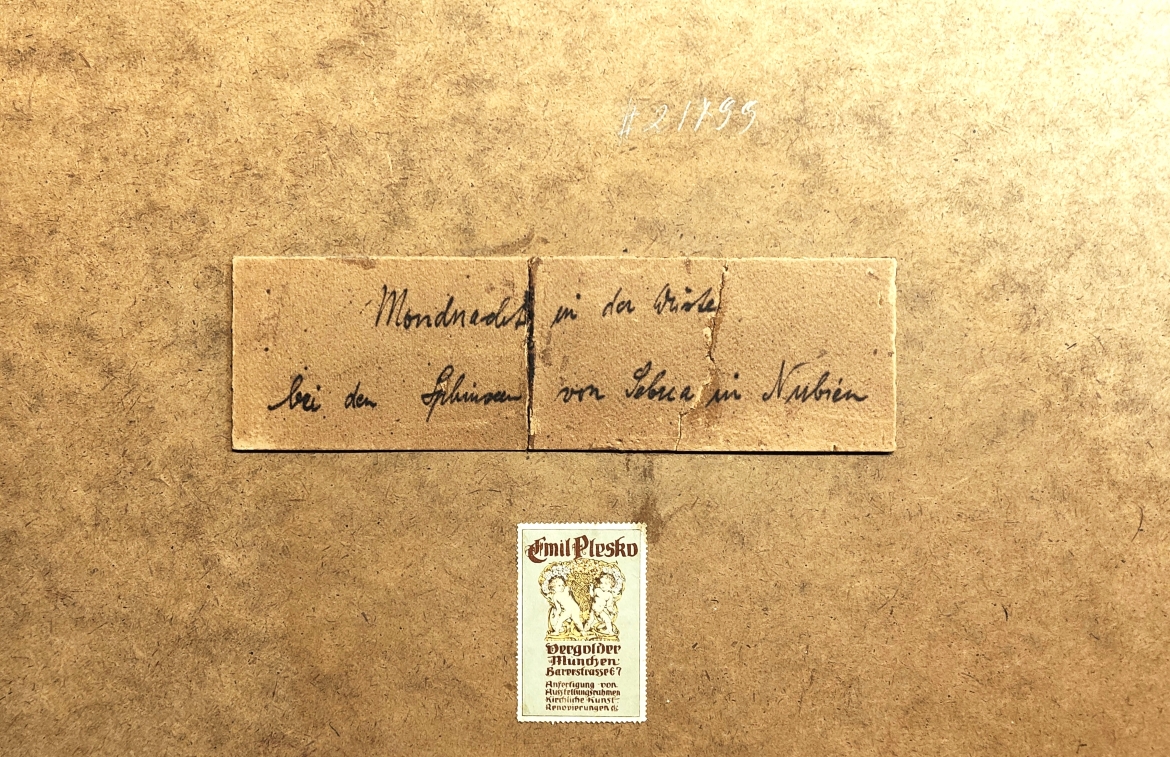 # 21799
Mondnacht in der Wüste
bei den Sphinxen von Sebua in Nubien
Emil Plesko
Vergolder
München
Barerstrasse 67
Anfertigung von
Ausstellungsrahmen
Kirchliche Kunst-
Renovierungen &